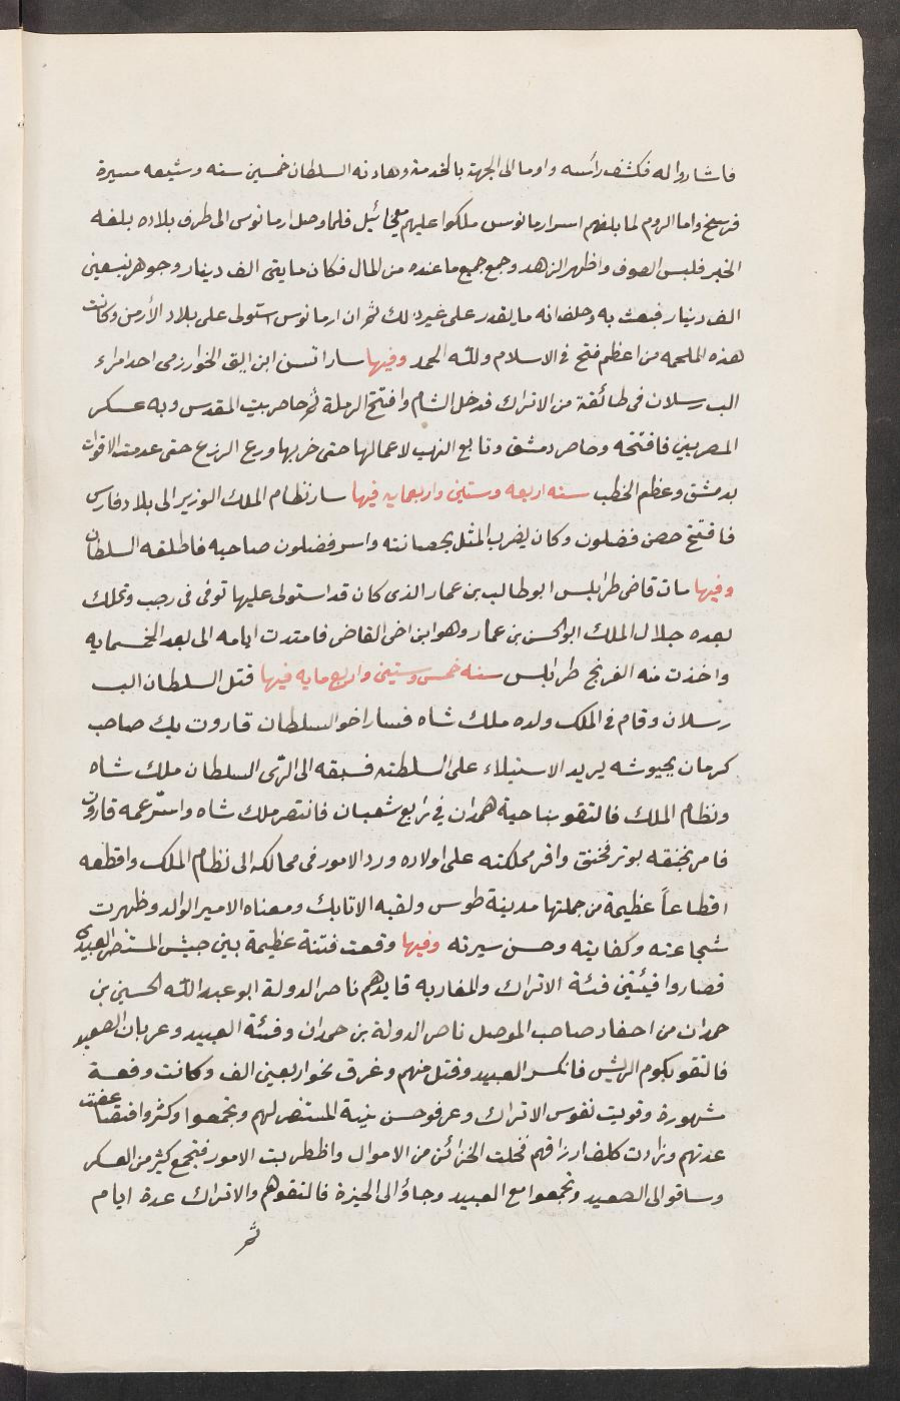 فاشاروا له فكشف رأسه واوما الى الجهة بالخدمة وهادنه السلطان خمسين سنه وشيعه مسيرة
فرسخ واما الروم لما بلغهم اسر ارمانوس ملكوا عليهم ميخائيل فلما وصل ارمانوس الى طرف بلاده بلغه
الخبر فلبس الصوف واظهر الزهد وجمع جميع ما عنده من المال فكان مايتى الف دينار وجوهر بتسعين
الف دينار فبعث به وحلف انه ما يقدر على غير ذلك ثم ان ارمانوس استولى على بلاد الأرمن وكانت
هذه الملحمه من اعظم فتح فى الاسلام ولله الحمد وفيها سار اتسز ابن ابق الخوارزمى احد امراء
الب رسلان فى طائفة من الاتراك فدخل الشام وافتتح الرملة ثم حاصر بيت المقدس وبه عسكر
المصريين فافتتحه وحاصر دمشق وتابع النهب لاعمالها حتى خربها ورع الزرع حتى عدمت الاقوات
بدمشق وعظم الخطب سنه اربعه وستين واربعمايه فيها سار نظام الملك الوزير الى بلاد فارس
فافتتح حصن فضلون وكان يضرب المثل بحصانته واسر فضلون صاحبه فاطلقه السلطان
وفيها مات قاضى طرابلس ابو طالب بن عمار الذى كان قد استولى عليها توفى فى رجب وتملك
بعده جلال الملك ابو الحسن بن عمار وهو ابن اخى القاضى فامتدت ايامه الى بعد الخمسمايه
واخذت منه الفرنج طرابلس سنه خمس وستين واربع مايه فيها قتل السلطان الب
رسلان وقام فى الملك ولده ملك شاه فسار اخو السلطان قاروت بك صاحب
كرمان بجيوشه يريد الاستيلاء على السلطنه فسبقه الى الرّى السلطان ملك شاه
ونظام الملك فالتقو بناحية همدان في رابع شعبان فانتصر ملك شاه واسر عمه قاروت
فامر بخنقه بوتر فخنق واقر مملكته على اولاده ورد الامور فى ممالكه الى نظام الملك واقطعه
اقطاعاً عظيمة من جملتها مدينة طوس ولقبه الاتابك ومعناه الامير الوالد وظهرت
شجاعته وكفايته وحسن سيرته وفيها وقعت فتنة عظيمة بين جيش المستنصر العبيدى
فصاروا فيئتين فئة الاتراك والمغاربه قايدهم ناصر الدولة ابو عبد الله الحسين بن
حمدان من احفاد صاحب الموصل ناصر الدولة بن حمدان وفئة العبيد وعربان الصعيد
فالتقو بكوم الريش فانكسر العبيد وقتل منهم وغرق نحو اربعين الف وكانت وقعة
مشهورة وقويت نفوس الاتراك وعرفو حسن نية المستنصر لهم وتجمعوا وكثروا فتضاعفت
عدتهم وزادت كلف ارزاقهم فخلت الخزائن من الاموال واظطربت الامور فتجمع كثير من العسكر
وساقو الى الصعيد وتجمعوا مع العبيد وجاؤ الى الجيزة فالتقو هم والاتراك عدة ايام
ثم